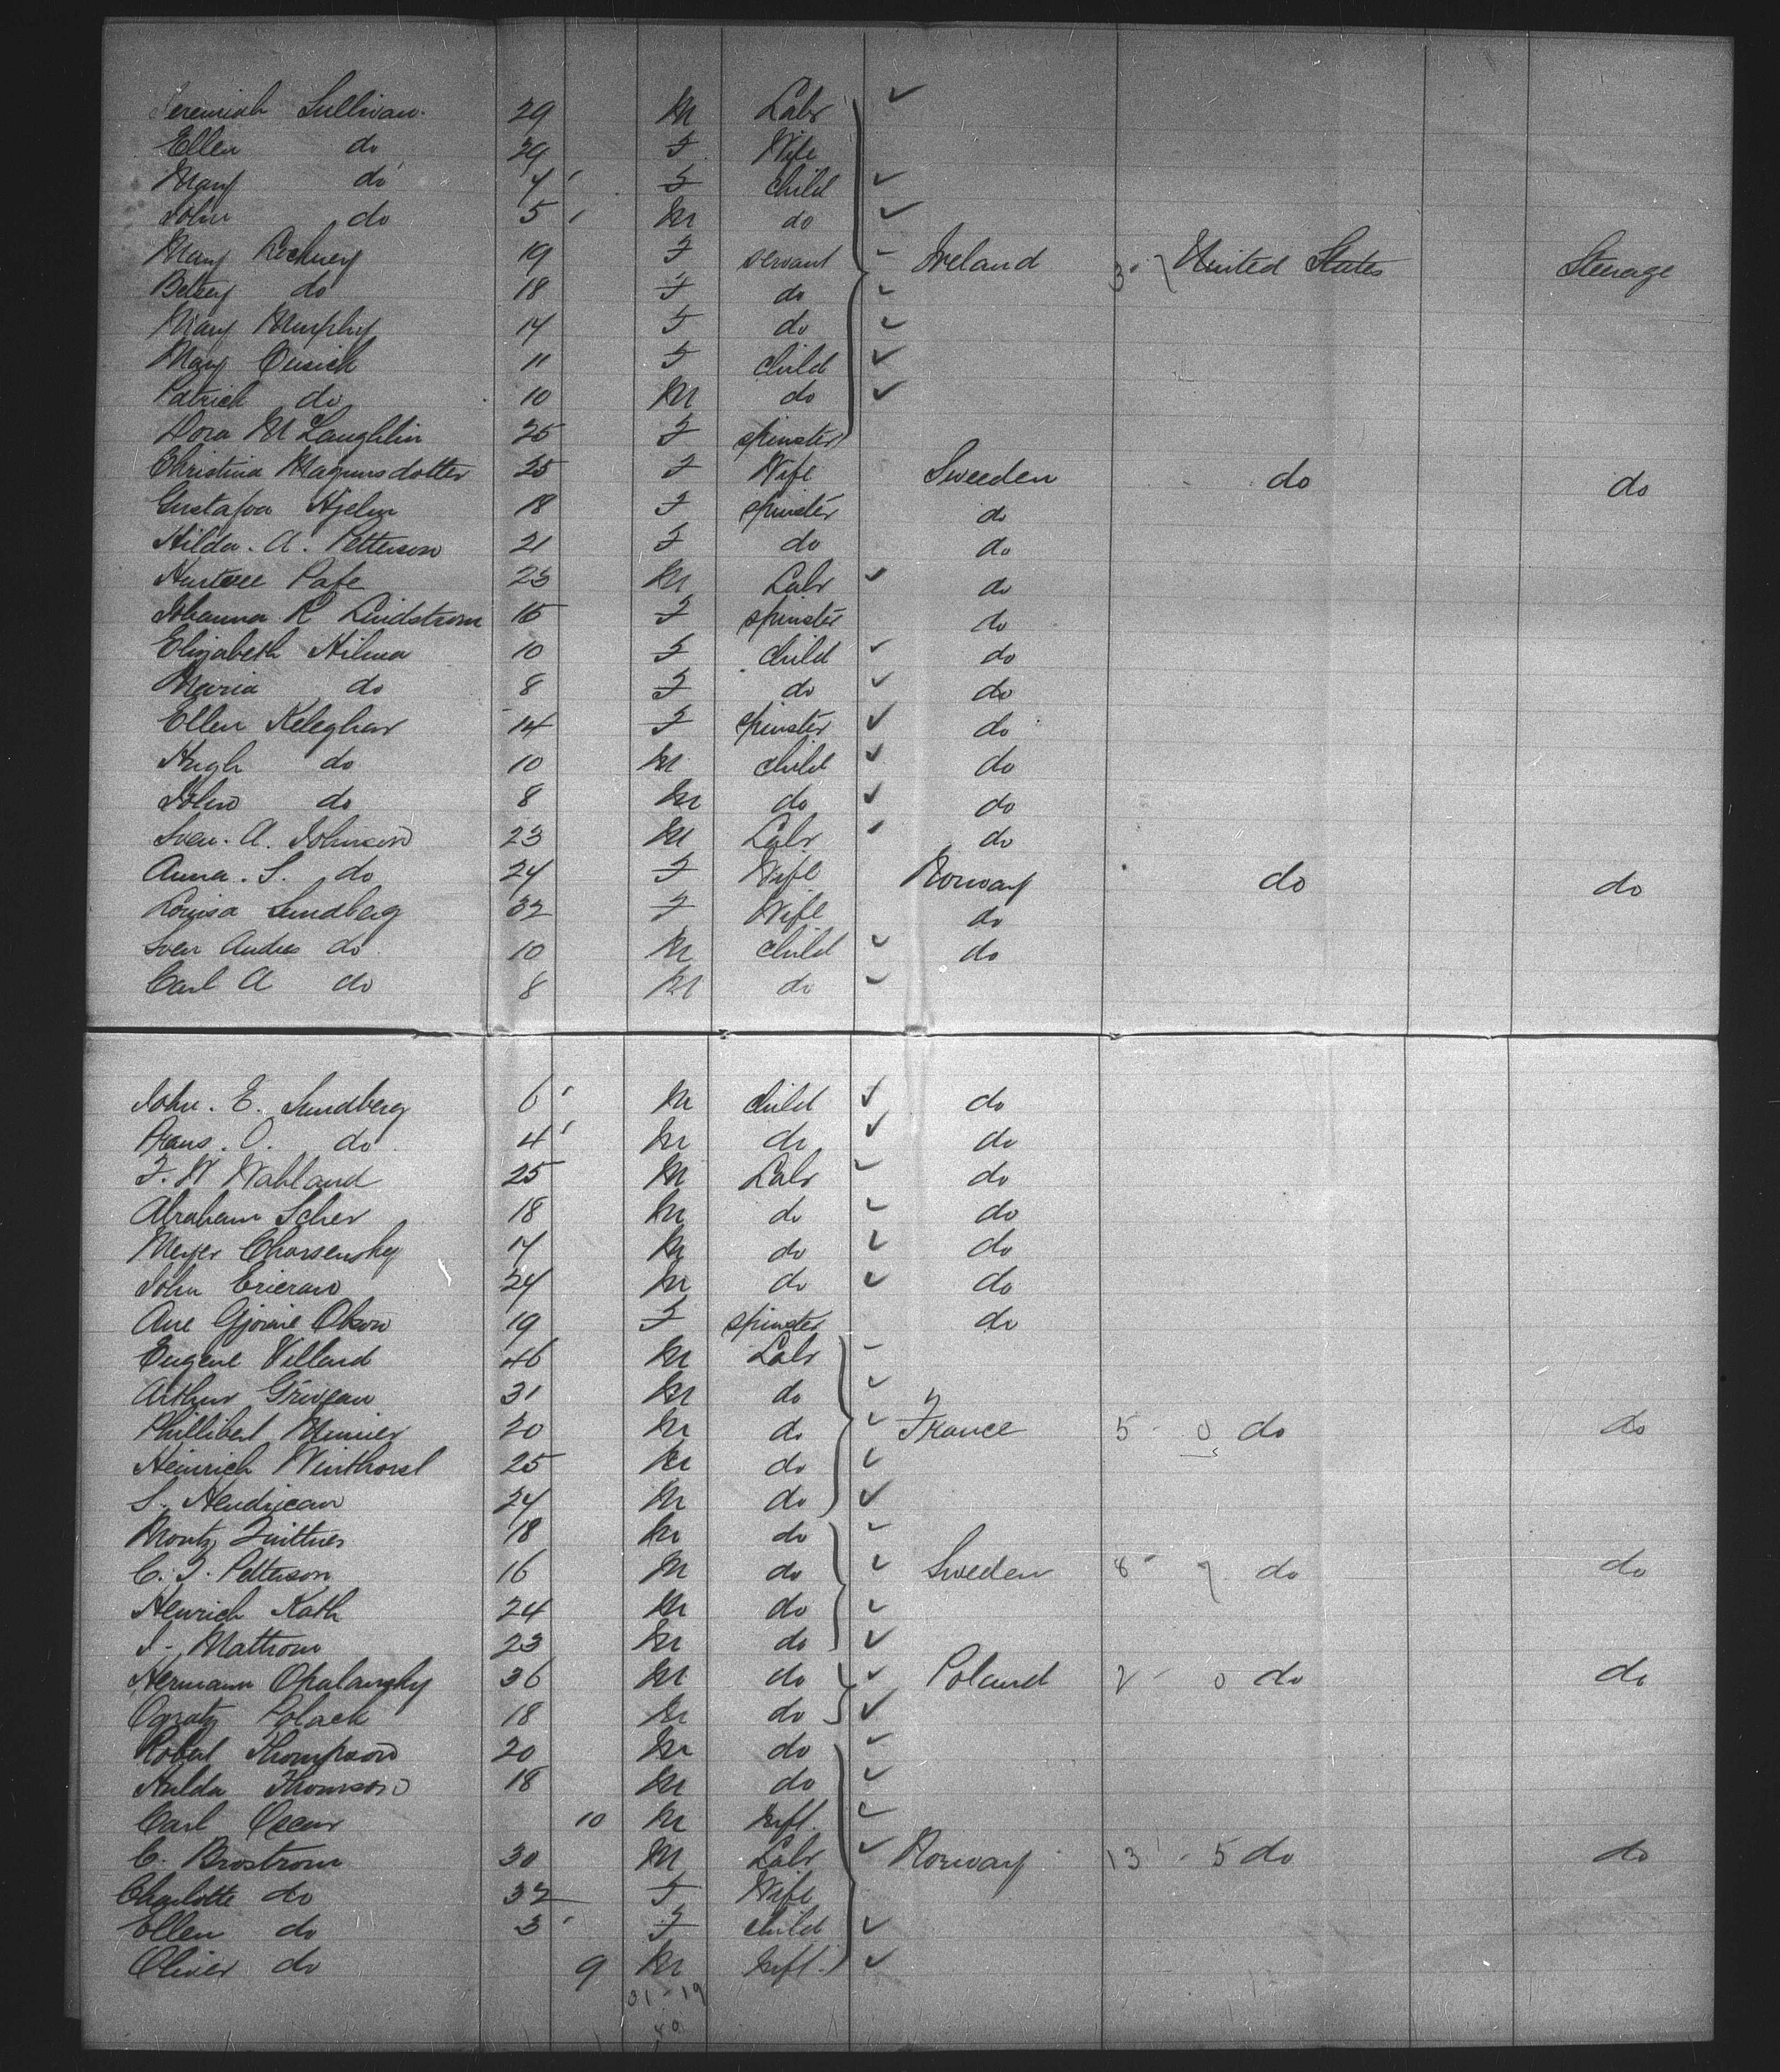 Jeremiah Sullivan. 29 M Labr
Ellen do 29 F Wife
Mary do 7 F child
John do 5 M do
Mary 19 F servant Ireland United States Steerage
Betsey do 18 F do
Mary Murphy 17 F do
Mary Cusick 11 F child
Patrick do 10 M do
Dora McLaughlin 25 F spinster
Christina Magnusdotter 25 F Wife Sweeden do do
Gustafva Hjelm 18 F spinster do
Hilda. A. Petterson 21 F do do
Pafe 23 M Labr do
Johanna K Lindstrom 16 F spinster do
Elizabeth Hilma 10 F child do
Maria do 8 F do do
Ellen Keleghan 14 F spinster do
Hugh do 10 M child do
John do 8 M do do
Sven. A. Johnson 23 M Labr do
Anna. S. do 24 F Wife Norway do do
Louisa Sundberg 32 F Wife do
Sven Andres do 10 M child do
Carl A do 8 M do
John. E. Sundberg 6 M child do
Frans. O. do 4 M do do
F. W Wahland 25 M Labr do
Abraham Scher 18 M do do
Meyer Chorsensky 17 M do do
John 24 M do do
Ane 19 F spinster do
Eugene Villard 46 M Labr
Arthur 31 M do
Phillibert 20 M do France 5 - 0 do do
Heinrich Winthorst 25 M do
S. 24 M do
Moritz 18 M do
C. J. Petterson 16 M do Sweden 8 - 7 do do
Henrich Kath 24 M do
23 M do
Hermann Opalansky 36 M do Poland 2 - 0 do do
Polack 18 M do
Robert Thompson 20 M do
Hulda Thomson 18 M do
Carl Oscar 10 M Inft.
C. Brostrom 30 M Labr Norway 13 - 5 do do
Charlotte do 32 F Wife
Ellen do 3 F child
Oliver do 9 M Inft.
31 - 19